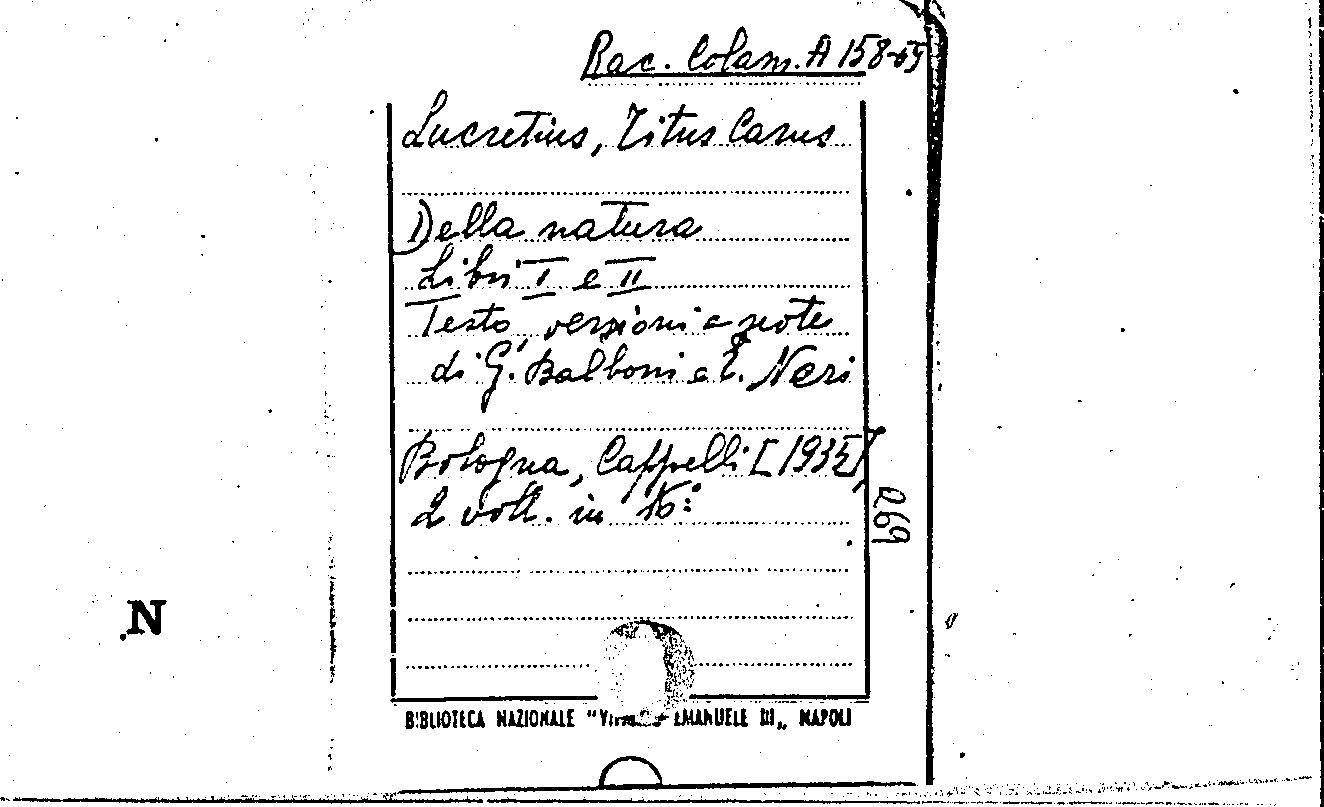 Rac. Colam. A 158-65
Lucretius, Titus Carus
Della natura
Libri I e II
Testo, versioni e note
di G. Balboni e E. Neri
Bologna, Cappelli [1935]
2 voll. in 16°
269
N
BIBLIOTECA NAZIONALE "VITTORIO EMANUELE III„ NAPOLI